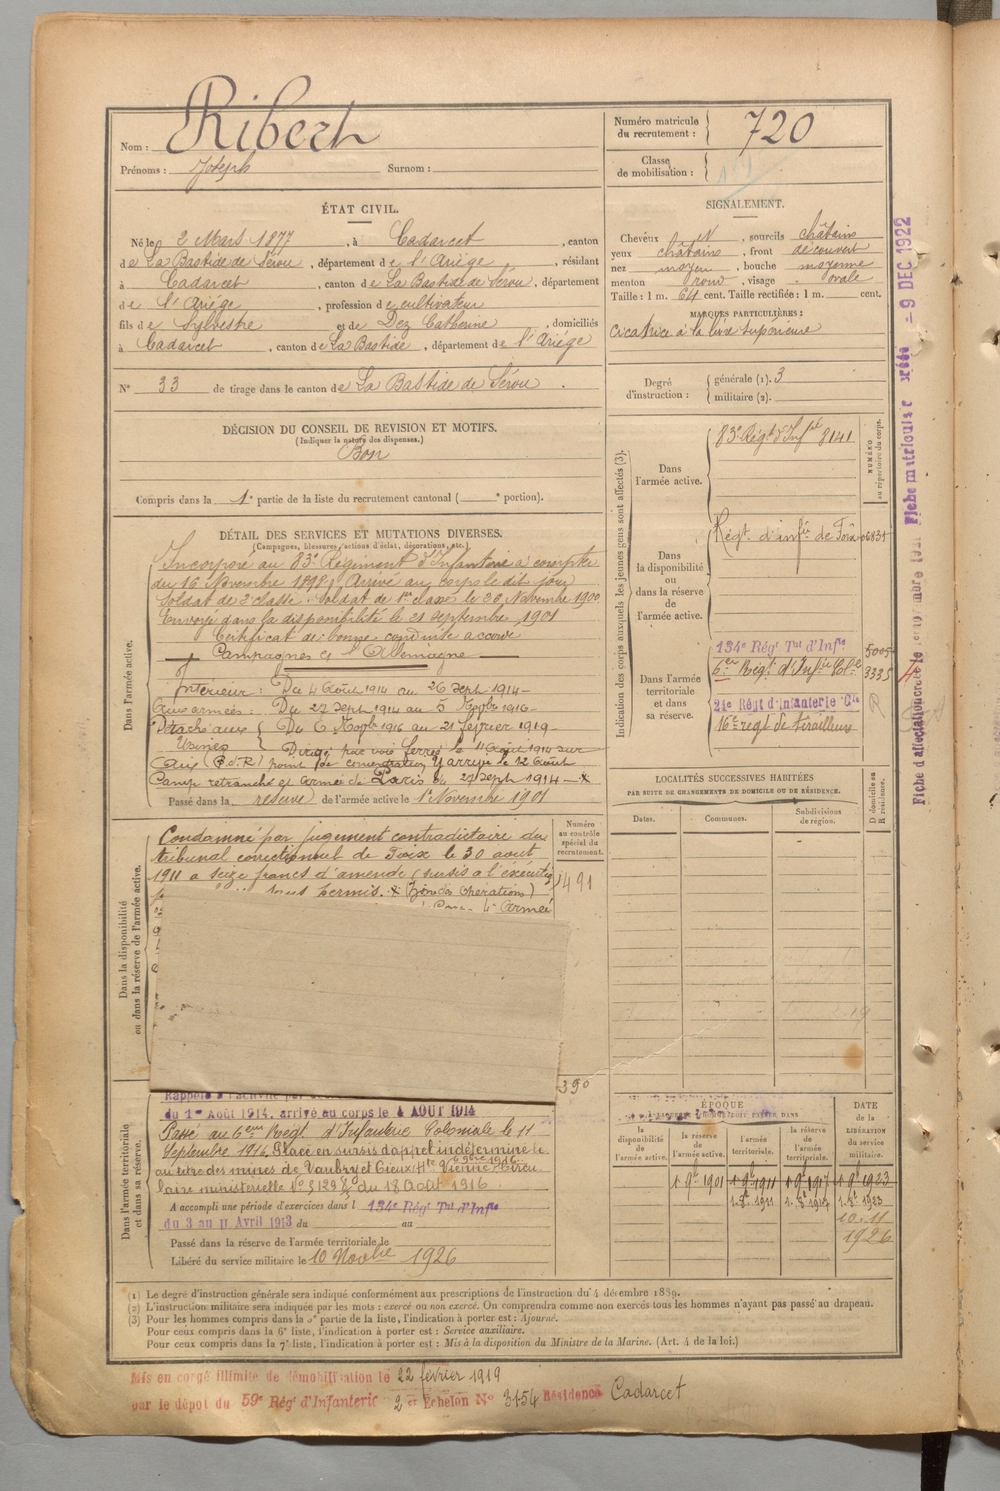 Nom : Ribert
Prénoms : Joseph Surnom :
Numéro matricule du recrutement : 720
Classe de mobilisation :
ÉTAT CIVIL.
Né le 2 Mars 1877, à Cadarcet, canton
de La Bastide de Sérou, département de l'Ariège, résidant
à Cadarcet, canton de La Bastide de Sérou, département
de l'Ariège, profession de cultivateur
fils de Sylvestre et de Dez Catherine, domiciliés
à Cadarcet, canton de La Bastide, département de l'Ariège
N° 33 de tirage dans le canton de La Bastide de Sérou.
SIGNALEMENT.
Cheveux N, sourcils châtains
yeux châtains, front découvert
nez moyen, bouche moyenne
menton rond, visage ovale
Taille : 1 m. 64 cent. Taille rectifiée : 1 m. cent.
MARQUES PARTICULIÈRES :
cicatrice à la lèvre supérieure
Degré d'instruction : générale (1). 3
militaire (2).
DÉCISION DU CONSEIL DE REVISION ET MOTIFS.
(Indiquer la nature des dispenses.)
Bon
Compris dans la 1e partie de la liste du recrutement cantonal ( e portion).
DÉTAIL DES SERVICES ET MUTATIONS DIVERSES.
(Campagnes, blessures, actions d'éclat, décorations, etc.)
Dans l'armée active.
Incorporé au 83e Régiment d'Infanterie à compter
du 16 Novembre 1898, Arrivé au corps le dit jour
Soldat de 2e classe. Soldat de 1re classe le 26 Novembre 1900
Envoyé dans la disponibilité le 21 septembre 1901
Certificat de bonne conduite accordé
Campagnes c/ l'Allemagne
Intérieur : Du 4 Août 1914 au 26 Sept 1914
Aux armées : Du 27 Sept 1914 au 5 Novbre 1916
Détaché aux Usines Du 6 Novbre 1916 au 21 février 1919
Dirigé par voie ferrée le 11 Août 1914 sur
point de concentration y arrivé le 12 Août
Camp retranché et armée de Paris du 27 Sept 1914
Passé dans la réserve de l'armée active le 1er Novembre 1901
Dans la disponibilité ou dans la réserve de l'armée active.
Condamné par jugement contradictoire du
tribunal correctionnel de Foix le 30 août
1911 à seize francs d'amende (sursis à l'exécution)
sans permis. (Zone des Opérations)
4e Armée
Numéro au contrôle spécial du recrutement.
1491
390
Dans l'armée territoriale et dans sa réserve.
Rappelé à l'activité par
du 1er Août 1914, arrivé au corps le 4 AOUT 1914
Passé au 6ème Régt. d'Infanterie Coloniale le 11
Septembre 1916. Placé en sursis d'appel indéterminé le
6 9bre 1916
au titre des mines de Vaubry et Cieux Hte Vienne. Circu
laire ministérielle N° 5129 8/9 du 18 Août 1916.
A accompli une période d'exercices dans l 134e Régt Tal d'Infie
du 3 au 11 Avril 1913 du au
Passé dans la réserve de l'armée territoriale le
Libéré du service militaire le 10 Novbre 1926
Indication des corps auxquels les jeunes gens sont affectés (3).
NUMÉRO au répertoire du corps.
Dans l'armée active.
83e Régt d'Inf 8141
Dans la disponibilité ou dans la réserve de l'armée active.
Régt. d'infie de Foix 06831
Dans l'armée territoriale et dans sa réserve.
134e Régt Tal d'Infie 5005
6e Régt. d'Infie Cole 9335
21e Régt d'Infanterie Cle
16e régt de tirailleurs
LOCALITÉS SUCCESSIVES HABITÉES
PAR SUITE DE CHANGEMENTS DE DOMICILE OU DE RÉSIDENCE.
D domicile ou R résidence.
Dates. Communes. Subdivisions de région.
ÉPOQUE
la disponibilité de l'armée active. la réserve de l'armée active. l'armée territoriale. la réserve de l'armée territoriale.
DATE de la LIBÉRATION du service militaire.
1 9bre 1901 1 9bre 1911 1 9bre 1917 1 9bre 1923
1.8bre 1911 1.8bre 1917 1.8bre 1923
10.11
1926
(1) Le degré d'instruction générale sera indiqué conformément aux prescriptions de l'instruction du 4 décembre 1889.
(2) L'instruction militaire sera indiquée par les mots : exercé ou non exercé. On comprendra comme non exercés tous les hommes n'ayant pas passé au drapeau.
(3) Pour les hommes compris dans la 5e partie de la liste, l'indication à porter est : Ajourné.
Pour ceux compris dans la 6e liste, l'indication à porter est : Service auxiliaire.
Pour ceux compris dans la 7e liste, l'indication à porter est : Mis à la disposition du Ministre de la Marine. (Art. 4 de la loi.)
Mis en congé illimité de démobilisation le 22 février 1919
par le dépôt du 59e Régt d'Infanterie 2e Echelon N° 3154 Résidence Cadarcet
Fiche d'affectation créée le
Fiche matricule créée - 9 DEC 1922